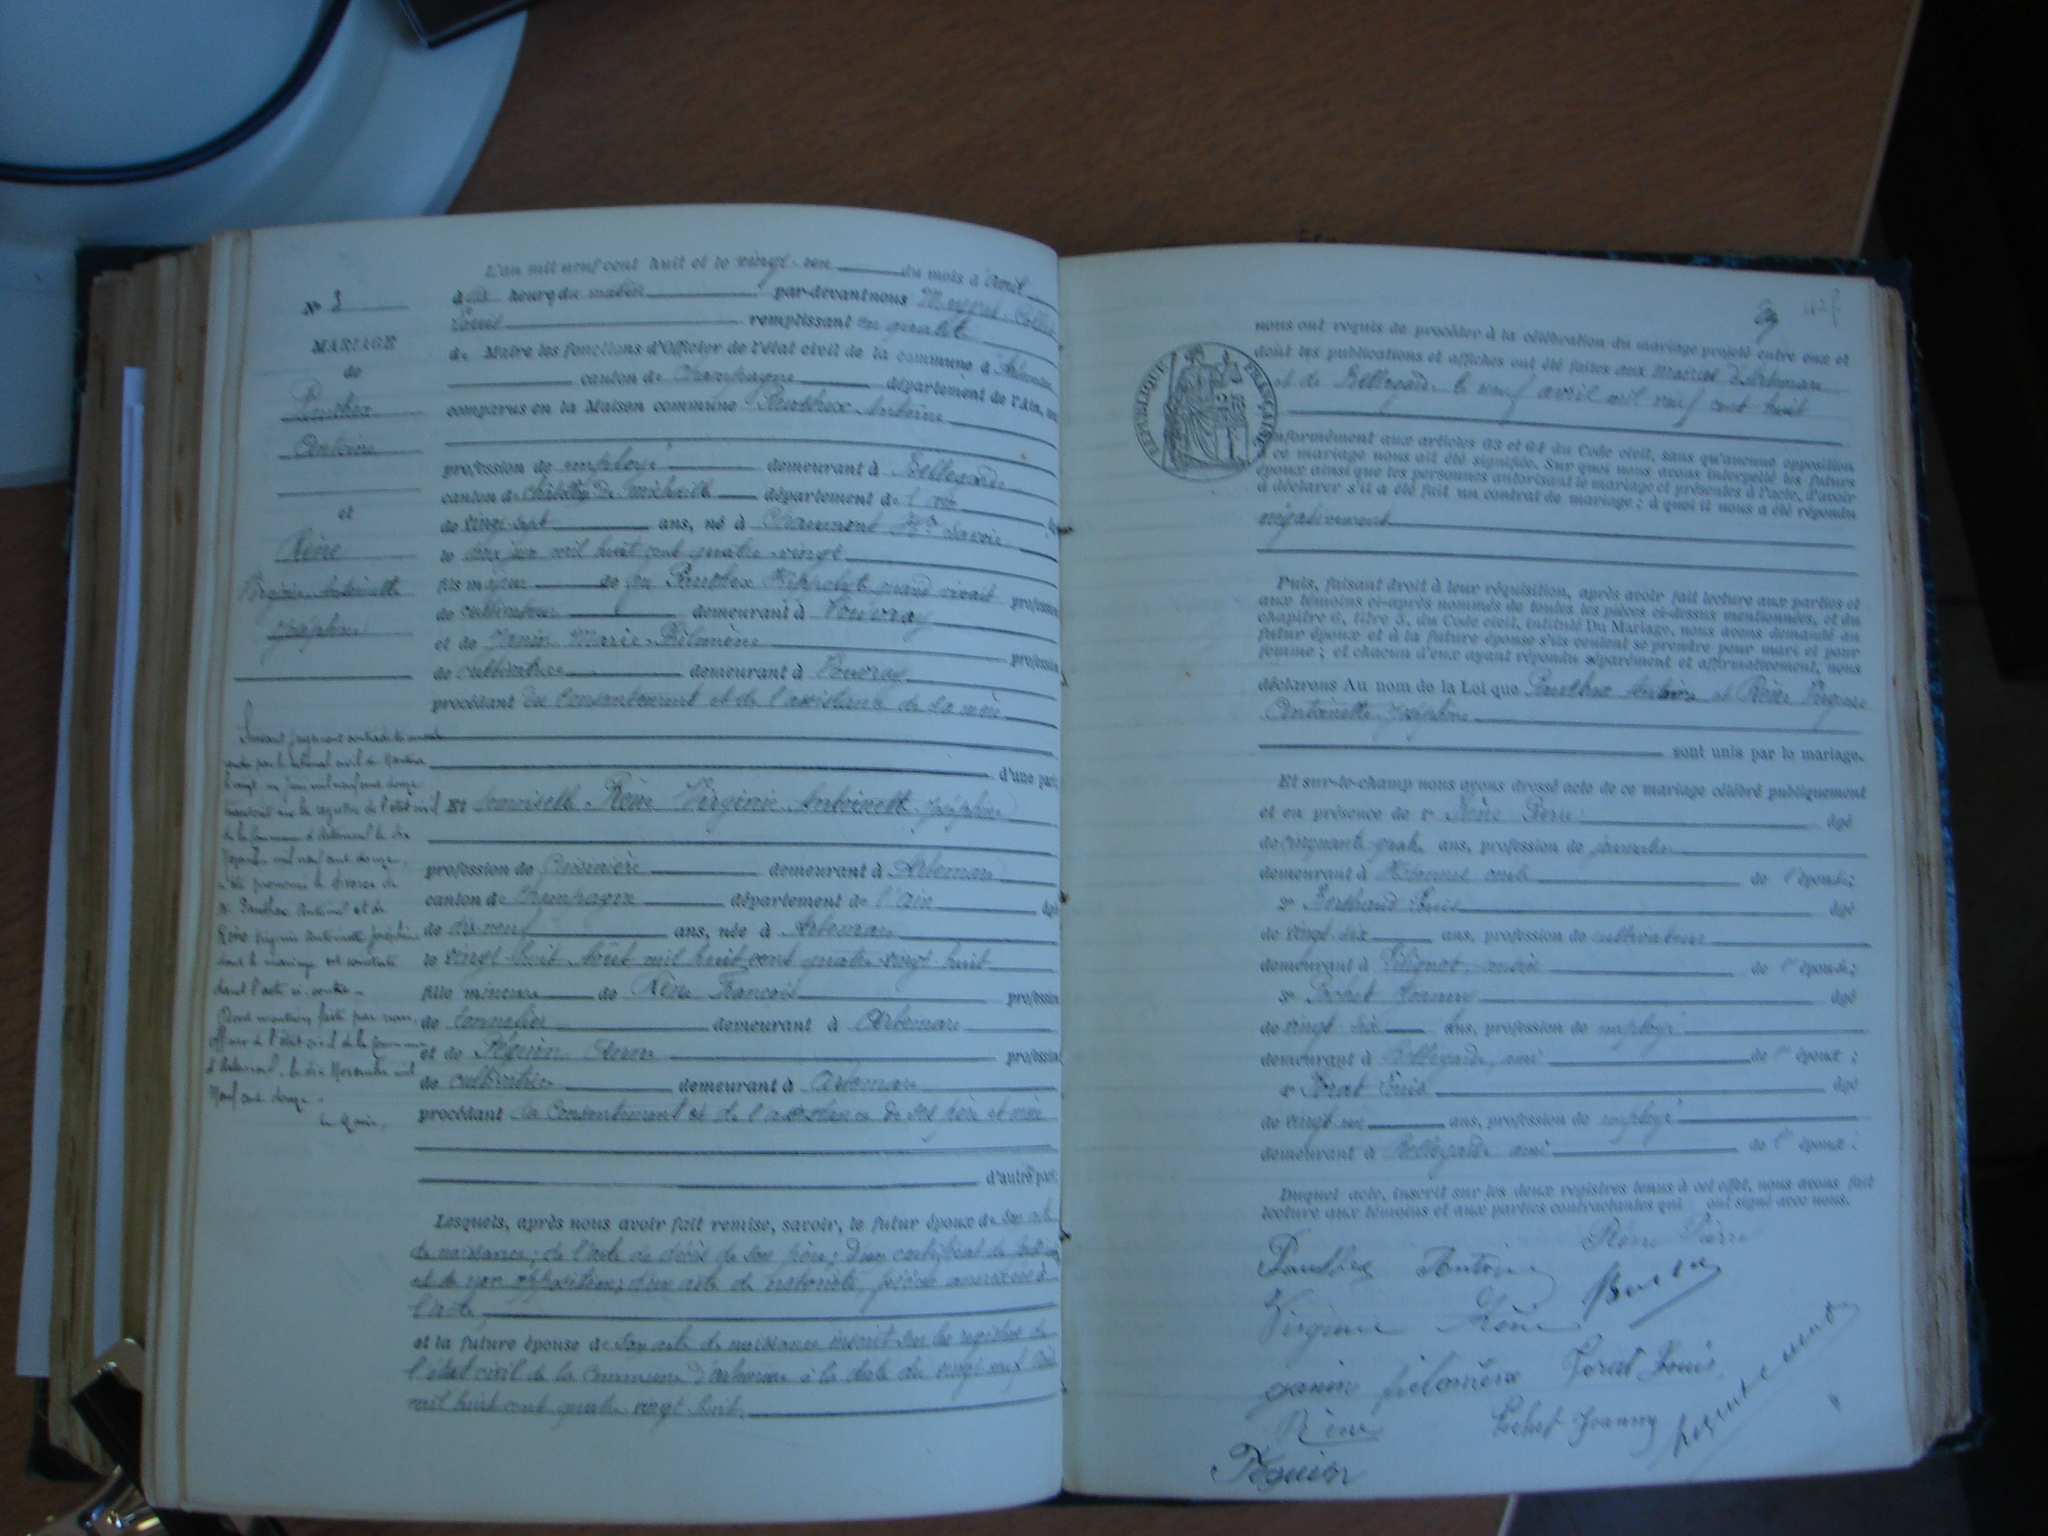 L'an mil neuf cent huit et le vingt-un du mois d'avril
Nº 3
à dix heures du matin par-devant nous
Louis remplissant en qualité
MARIAGE
de Maire les fonctions d'Officier de l'état civil de la commune d'Artemare,
de
canton de Champagne département de l'Ain,
Pauthex
comparus en la Maison commune Pauthex Antoine
Antoine
profession de employé demeurant à Bellegarde
canton de Châtillon de Michaille département de l'Ain
et
de vingt-sept ans, né à Chaumont Hte Savoie
Rène
le deux juin mil huit cent quatre-vingt
Virginie Antoinette
fils majeur de feu Pauthex Hippolyte quand vivait profession
de cultivateur demeurant à Vouvray
Joséphine
et de Janin Marie Philomène profession
de cultivatrice demeurant à Vouvray
procédant du consentement et de l'assistance de la mère
d'une part,
Et demoiselle Rène Virginie Antoinette Joséphine
profession de cuisinière demeurant à Artemare
canton de Champagne département de l'Ain âgé
de dix-neuf ans, née à Artemare
le vingt-huit Août mil huit cent quatre-vingt huit
fille mineure de Rène François profession
de tonnelier demeurant à Artemare
et de Péguin profession
de cultivatrice demeurant à Artemare
procédant du consentement et de l'assistance de ses père et mère
d'autre part.
Suivant jugement
rendu par le tribunal civil de Nantua
le vingt un juin mil neuf cent douze
transcrit sur les registres de l'état civil
de la Commune d'Artemare le dix
mil neuf cent douze,
a été prononcé le divorce de
Mr Pauthex Antoine et de
Rène Virginie Antoinette Joséphine
dont le mariage est constaté
dans l'acte ci-contre.
Dont mention faite par nous,
officier de l'état civil de la Commune
d'Artemare, le dix Novembre mil
neuf cent douze.
Le Maire,
Lesquels, après nous avoir fait remise, savoir, le futur époux de son acte
de naissance; de l'acte de décès de son père; d'un certificat de publication
et de non opposition; d'un acte de notoriété, pièces annexées à
l'acte
et la future épouse de son acte de naissance inscrit sur les registres de
l'état civil de la Commune d'Artemare à la date du vingt neuf Août
mil huit cent quatre vingt huit.
nous ont requis de procéder à la célébration du mariage projeté entre eux et
dont les publications et affiches ont été faites aux mairies d'Artemare
et de Bellegarde le neuf avril mil neuf cent huit
RÉPUBLIQUE FRANÇAISE
conformément aux articles 63 et 64 du Code civil, sans qu'aucune opposition
à ce mariage nous ait été signifiée. Sur quoi nous avons interpellé les futurs
époux ainsi que les personnes autorisant le mariage et présentes à l'acte, d'avoir
à déclarer s'il a été fait un contrat de mariage; à quoi il nous a été répondu
négativement
Puis, faisant droit à leur réquisition, après avoir fait lecture aux parties et
aux témoins ci-après nommés de toutes les pièces ci-dessus mentionnées, et du
chapitre 6, titre 5, du Code civil, intitulé Du Mariage, nous avons demandé au
futur époux et à la future épouse s'ils veulent se prendre pour mari et pour
femme; et chacun d'eux ayant répondu séparément et affirmativement, nous
déclarons Au nom de la Loi que Pauthex Antoine et Rène Virginie
Antoinette Joséphine
sont unis par le mariage.
Et sur-le-champ nous avons dressé acte de ce mariage célébré publiquement
et en présence de 1º Rène Pierre âgé
de cinquante-quatre ans, profession de journalier
demeurant à oncle de l'épouse;
2º Berthaud Louis âgé
de vingt six ans, profession de cultivateur
demeurant à cousin de l'épouse;
3º Pochet Joanny âgé
de vingt six ans, profession de employé
demeurant à Bellegarde, ami de l'époux;
4º Forat Louis âgé
de vingt ans, profession de employé
demeurant à Bellegarde ami de l'époux.
Duquel acte, inscrit sur les deux registres tenus à cet effet, nous avons fait
lecture aux témoins et aux parties contractantes qui ont signé avec nous.
Pauthex Antoine Rène Pierre
Virginie Rène
janin filomène Forat Louis
Rène Pochet Joanny
Péguin